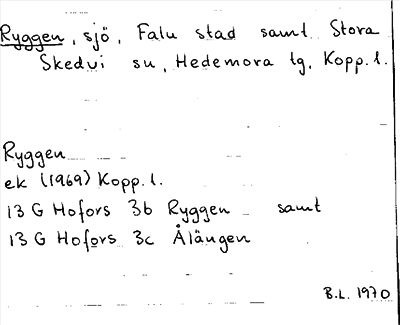 Ryggen, sjö, Falu stad samt Stora
Skedvi su, Hedemora tg, Kopp. l.
Ryggen
ek (1969) Kopp. l.
13 G Hofors 3b Ryggen samt
13 G Hofors 3c Ålängen
B.L. 1970